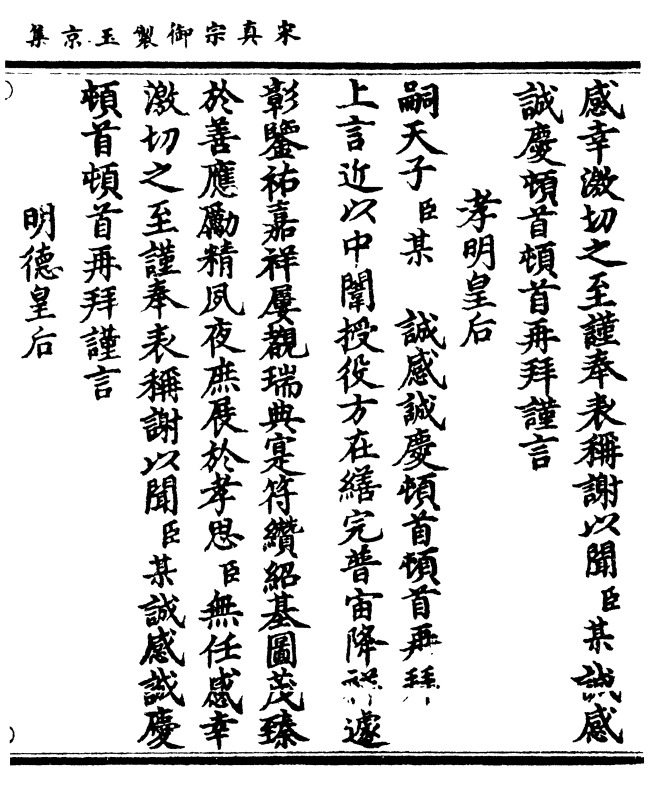 宋真宗御製玉京集
感幸激切之至謹奉表稱謝以聞臣某誠感
誠慶頓首頓首再拜謹言
孝明皇后
嗣天子臣某 誠感誠慶頓首頓首再拜
上言近以中闈授役方在繕完普宙降祥遽
彰鑒祐嘉祥屢覩瑞典寔符纘紹基圖茂臻
於善應勵精夙夜庶展於孝思臣無任感幸
激切之至謹奉表稱謝以聞臣某誠感誠慶
頓首頓首再拜謹言
明德皇后